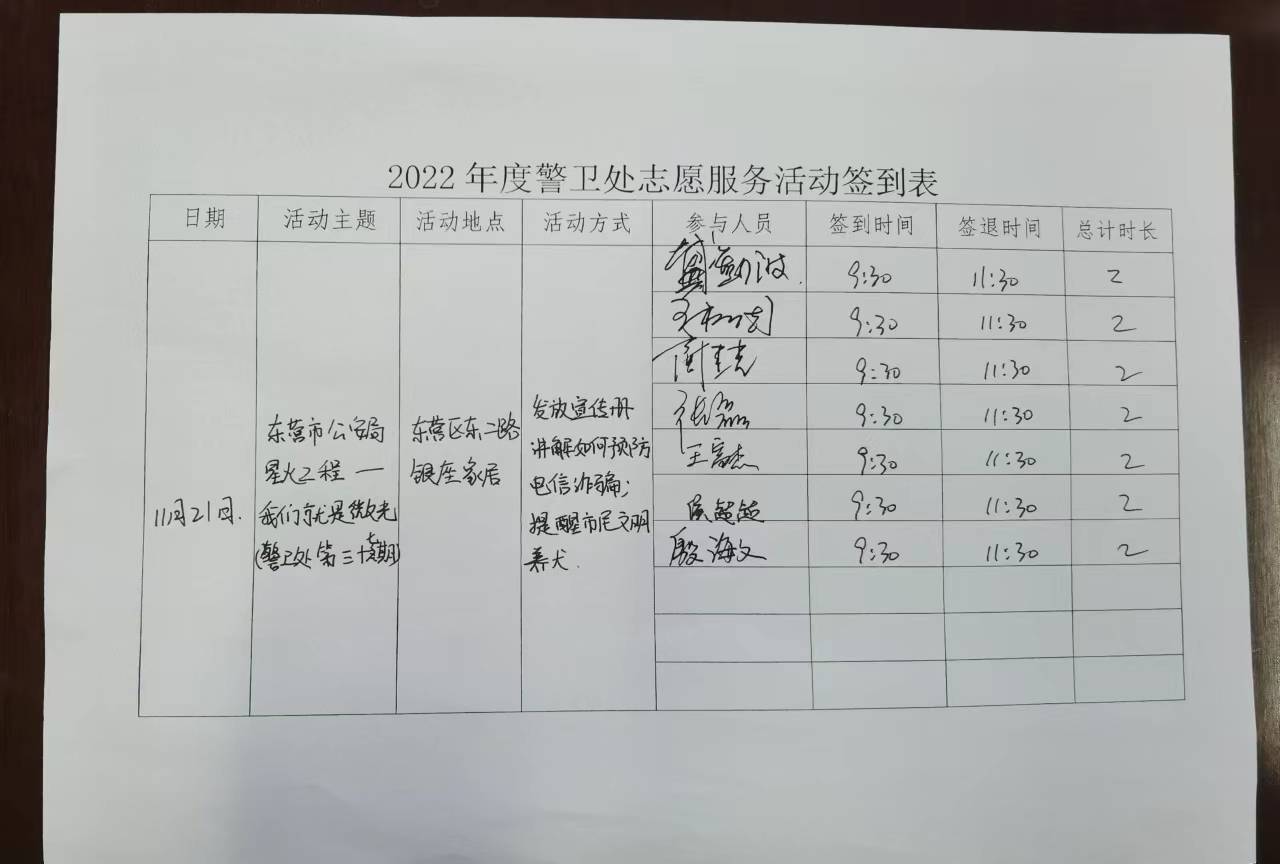 2022 年度警卫处志愿服务活动签到表
日期 活动主题 活动地点 活动方式 参与人员 签到时间 签退时间 总计时长
11月21日.
东营市公安局
星火工程 —
我们就是微光
(警卫处第三十七期)
东营区东二路
银座家居
发放宣传册
讲解如何预防
电信诈骗;
提醒市民文明
养犬.
9:30 11:30 2
9:30 11:30 2
9:30 11:30 2
张磊 9:30 11:30 2
王富杰 9:30 11:30 2
侯超超 9:30 11:30 2
殷海文 9:30 11:30 2